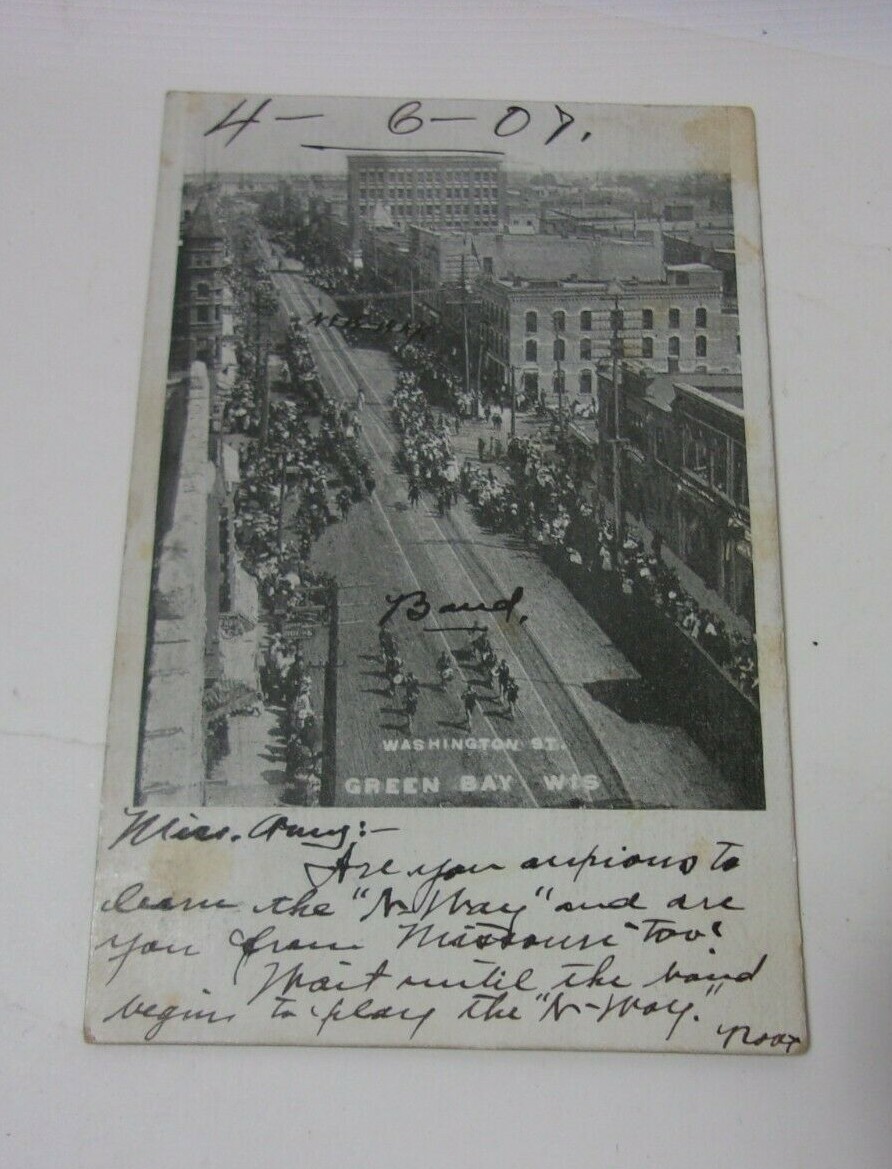 4 - 6 - 07.
NEW-WAY
Band,
WASHINGTON ST.
GREEN BAY WIS
Miss. Amy:-
Are you anxious to
learn the "N-Way" and are
you from Missouri too?
Wait until the band
begins to play the "N-Way."